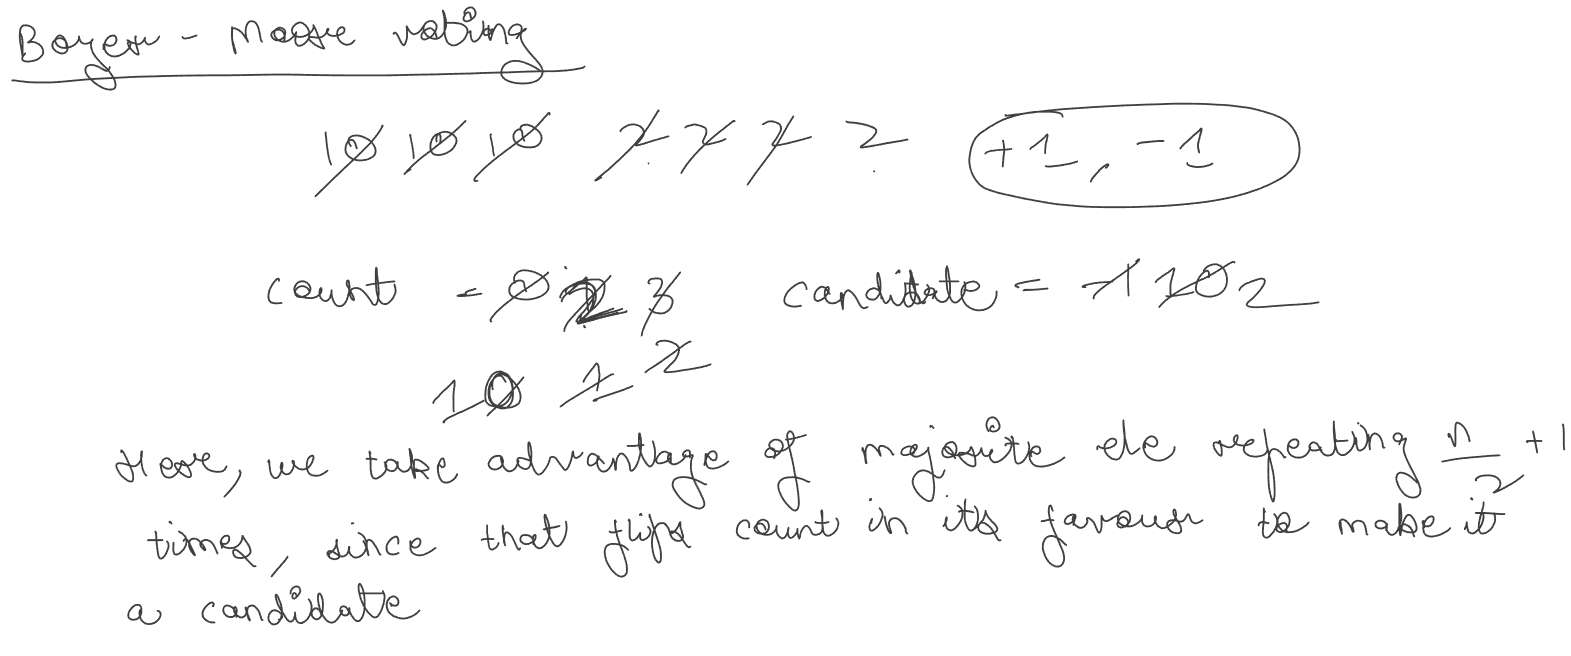 Boyer - Moore voting
10 10 10 2 2 2 2 +1, -1
count = 0 2 3 candidate = -1 10 2
1 0 1 2
Here, we take advantage of majorite ele repeating n/2 + 1
times, since that flips count in its favour to make it
a candidate